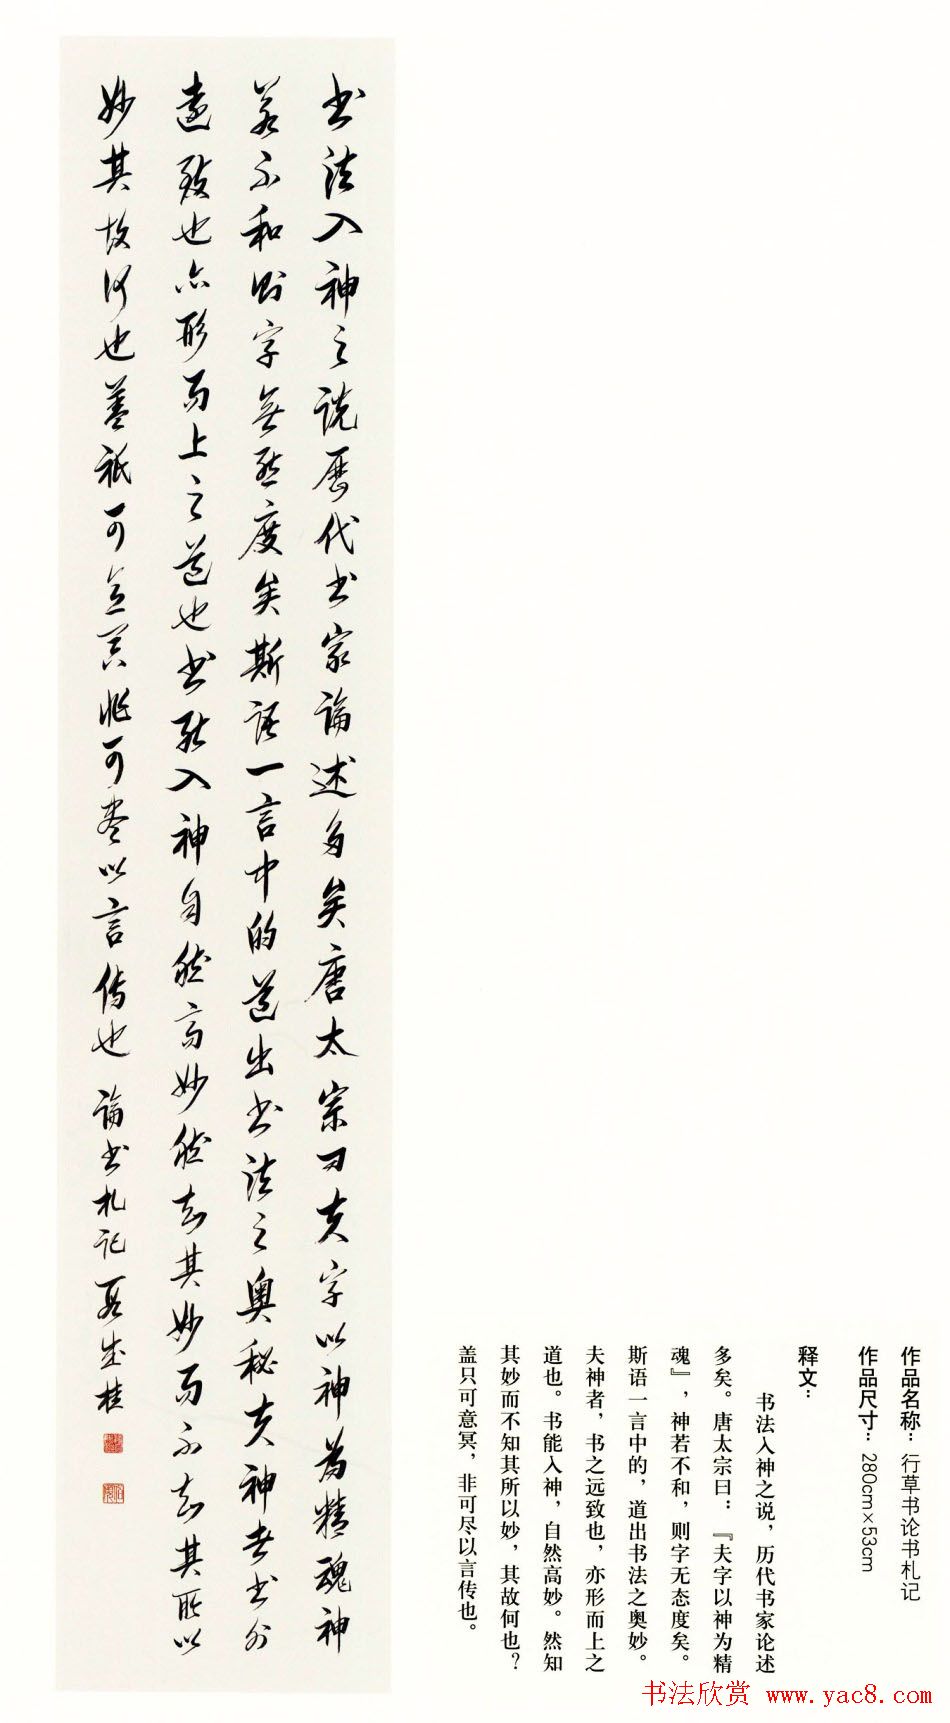 作品名称：行草书论书札记
作品尺寸：280cm×53cm
释文：
书法入神之说，历代书家论述
多矣。唐太宗曰：『夫字以神为精
魂』，神若不和，则字无态度矣。
斯语一言中的，道出书法之奥妙。
夫神者，书之远致也，亦形而上之
道也。书能入神，自然高妙。然知
其妙而不知其所以妙，其故何也？
盖只可意冥，非可尽以言传也。
書法入神之說歷代書家論述多矣唐太宗曰夫字以神為精魂神
若不和則字無態度矣斯語一言中的道出書法之奧秘夫神者書
遠致也亦形而上之道也書能入神自然高妙然知其妙而不知其所以
妙其故何也蓋祇可意冥非可盡以言傳也 論書札記 成桂
书法欣赏 www.yac8.com